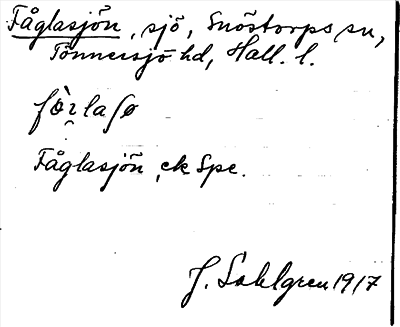 Fåglasjön, sjö, Snöstorps sn,
Tönnersjö hd, Hall. l.
Fåglasjön, ek Spe.
J. Sahlgren 1917